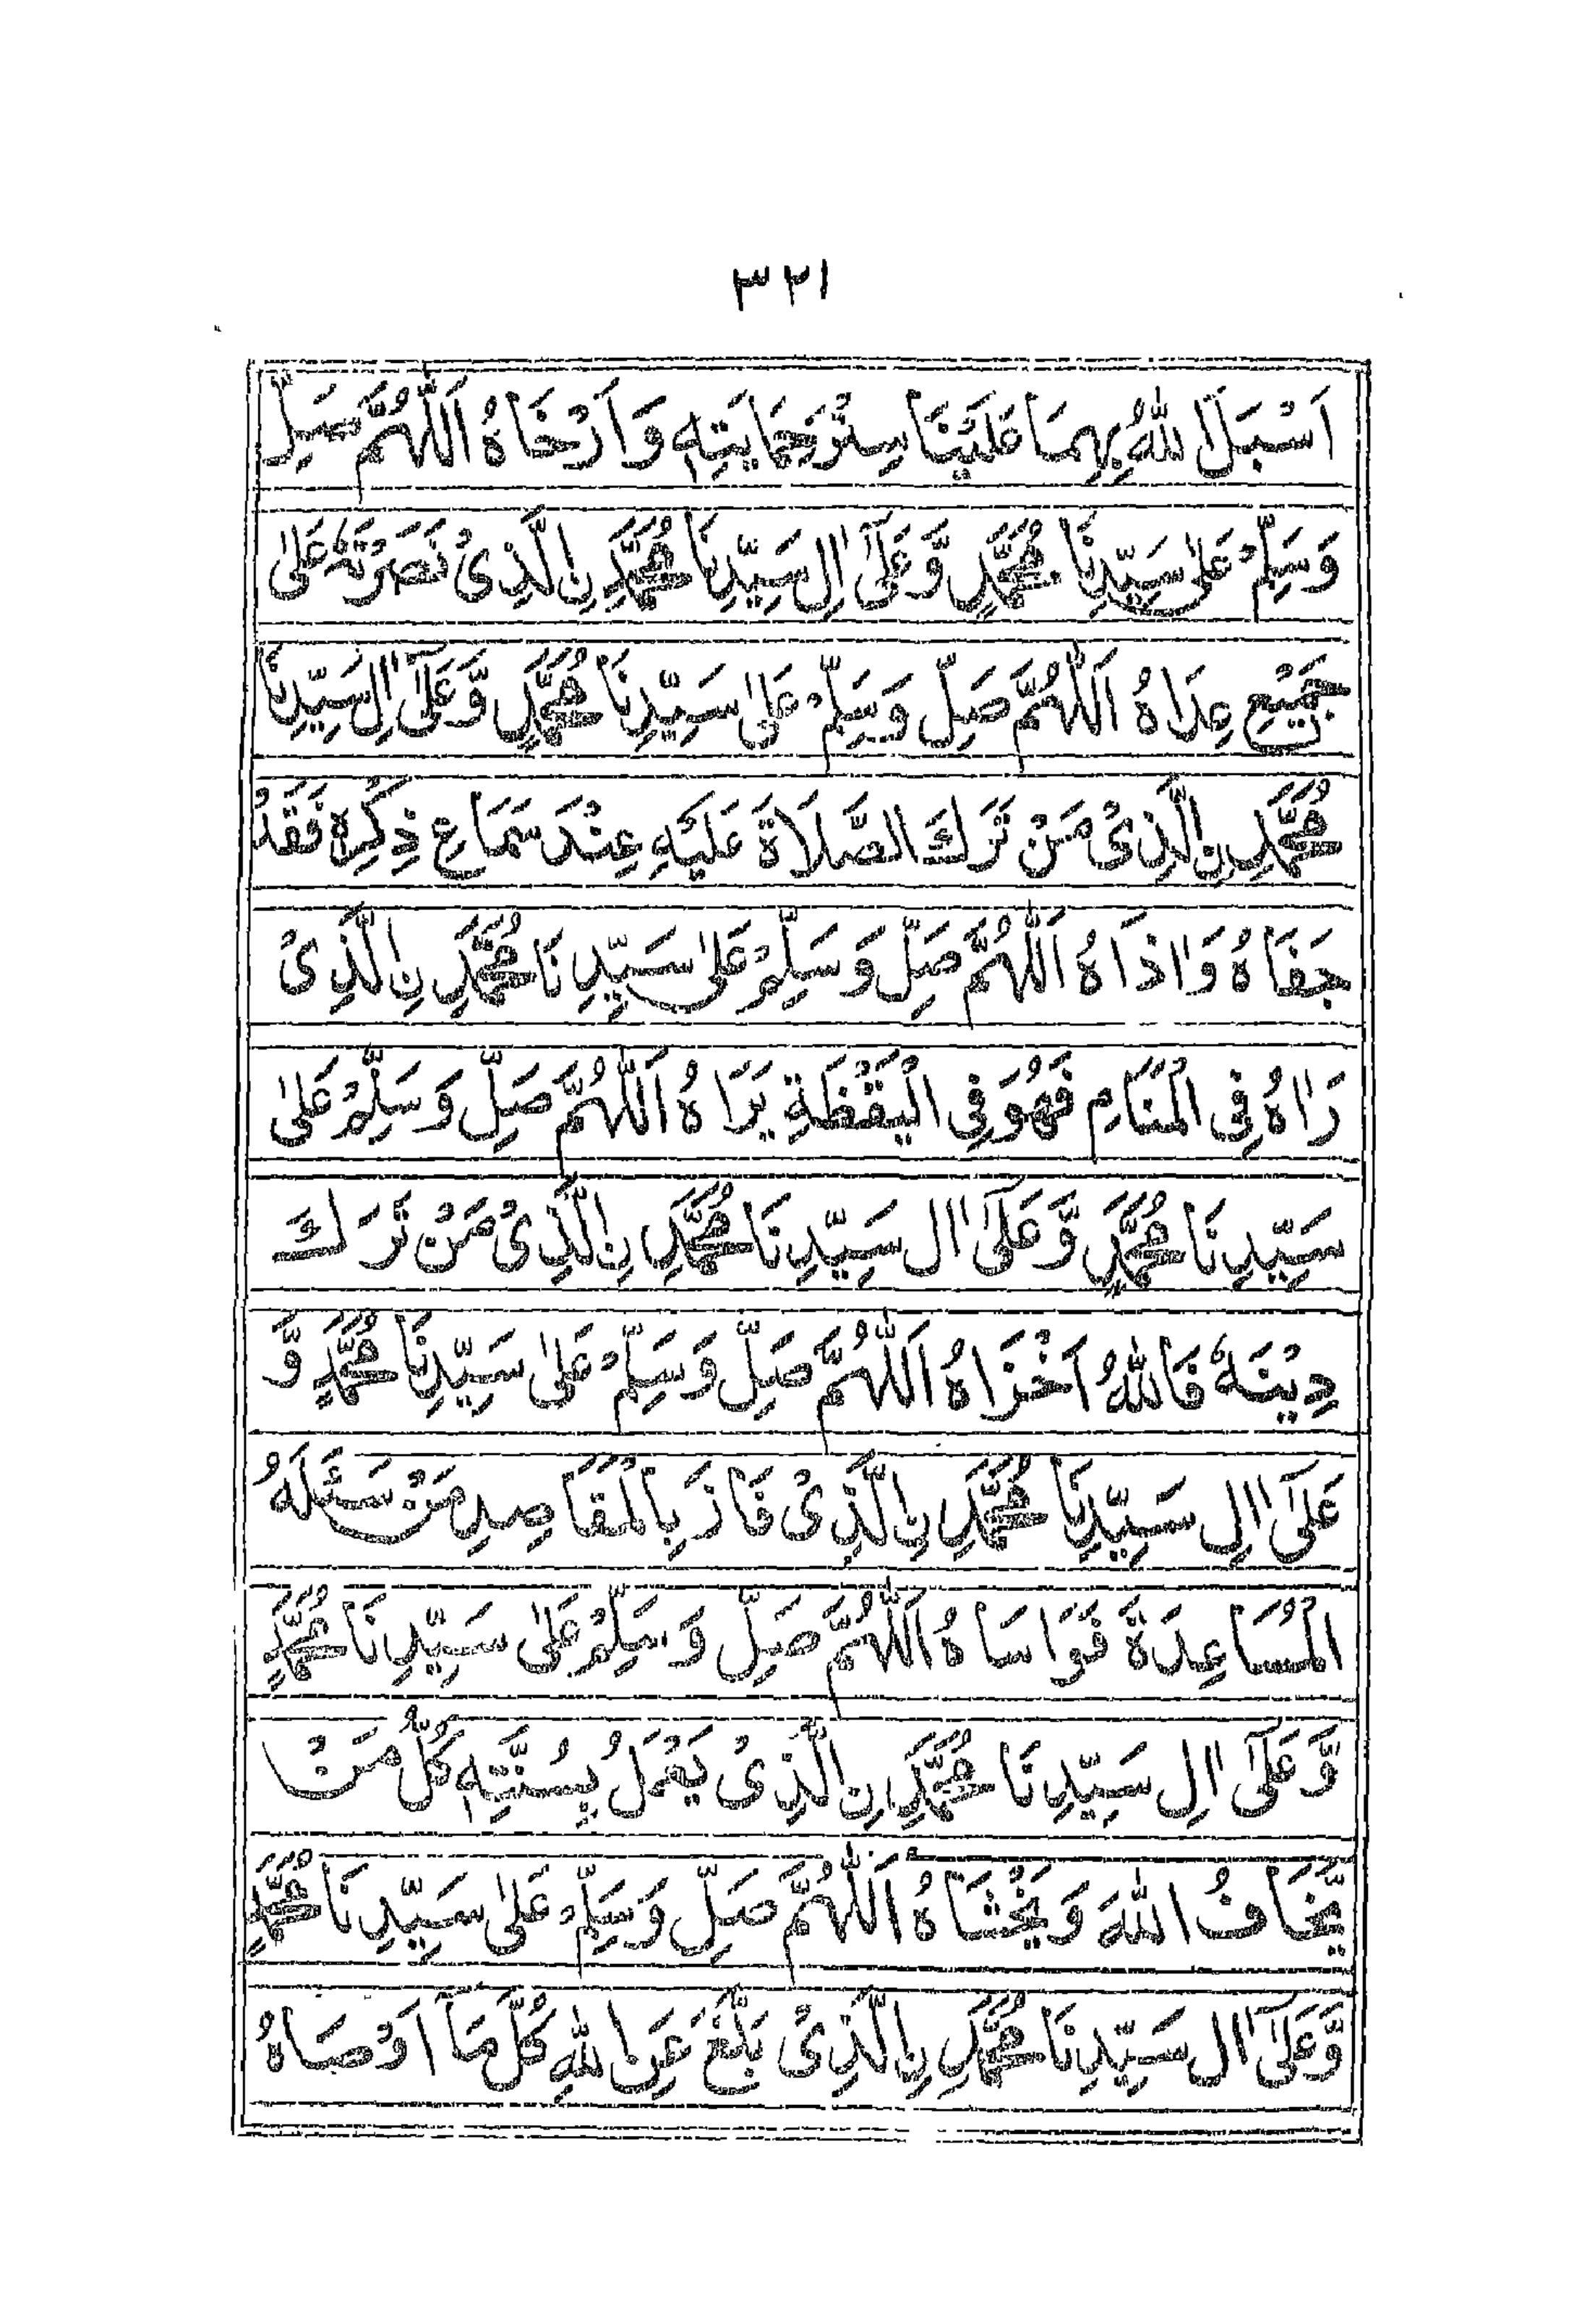 ٣٢١
اَسْبَلَ اللهُ بِهِمَا عَلَيْنَا سِتْرَحِمَايَتِهٖ وَاَرْخَاهُ اَللّٰهُمَّ صَلِّ
وَسَلِّمْ عَلٰى سَيِّدِنَا مُحَمَّدٍ وَّعَلٰٓى اٰلِ سَيِّدِنَا مُحَمَّدِ نِ الَّذِىْ نَصَرْتَهٗ عَلٰى
جَمِيْعِ عِدَاهُ اَللّٰهُمَّ صَلِّ وَسَلِّمْ عَلٰى سَيِّدِنَا مُحَمَّدٍ وَّعَلٰٓى اٰلِ سَيِّدِنَا
مُحَمَّدِ نِ الَّذِىْ مَنْ تَرَكَ الصَّلَاةَ عَلَيْهِ عِنْدَ سَمَاعِ ذِكْرِهٖ فَقَدْ
جَفَاهُ وَاٰذَاهُ اَللّٰهُمَّ صَلِّ وَسَلِّمْ عَلٰى سَيِّدِنَا مُحَمَّدِ نِ الَّذِىْ
رَاٰهُ فِى الْمَنَامِ فَهُوَ فِى الْيَقْظَةِ يَرَاهُ اَللّٰهُمَّ صَلِّ وَسَلِّمْ عَلٰى
سَيِّدِنَا مُحَمَّدٍ وَّعَلٰٓى اٰلِ سَيِّدِنَا مُحَمَّدِ نِ الَّذِىْ مَنْ تَرَكَ
دِيْنَهٗ فَاللهُ اَخْزَاهُ اَللّٰهُمَّ صَلِّ وَسَلِّمْ عَلٰى سَيِّدِنَا مُحَمَّدٍ وَّ
عَلٰٓى اٰلِ سَيِّدِنَا مُحَمَّدِ نِ الَّذِىْ فَازَ بِالْمَقَاصِدِ مَنْ سَئَلَهُ
الْمُسَاعِدَةَ فَوَاسَاهُ اَللّٰهُمَّ صَلِّ وَسَلِّمْ عَلٰى سَيِّدِنَا مُحَمَّدٍ
وَّعَلٰٓى اٰلِ سَيِّدِنَا مُحَمَّدِ نِ الَّذِىْ يَعْمَلُ بِسُنَّتِهٖ كُلُّ مَنْ
يَّخَافُ اللهَ وَيَخْشَاهُ اَللّٰهُمَّ صَلِّ وَسَلِّمْ عَلٰى سَيِّدِنَا مُحَمَّدٍ
وَّعَلٰٓى اٰلِ سَيِّدِنَا مُحَمَّدِ نِ الَّذِىْ بَلَّغَ عَنِ اللهِ كُلَّ مَآ اَوْصَاهُ